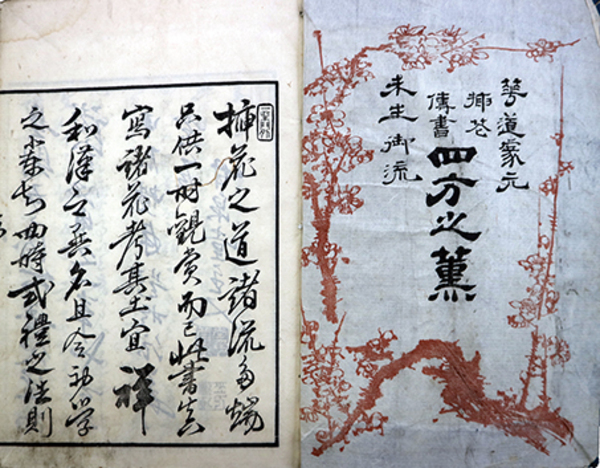 華道家元
挿花
傳書
四方之薫
未生御流
挿花之道諸流多端
只供一時觀賞而已此書真
寫諸花考其土宜祥
和漢之異名且令初学
之輩知四時式禮之法則